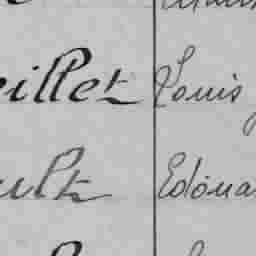 eillet Louis
ult Edoua